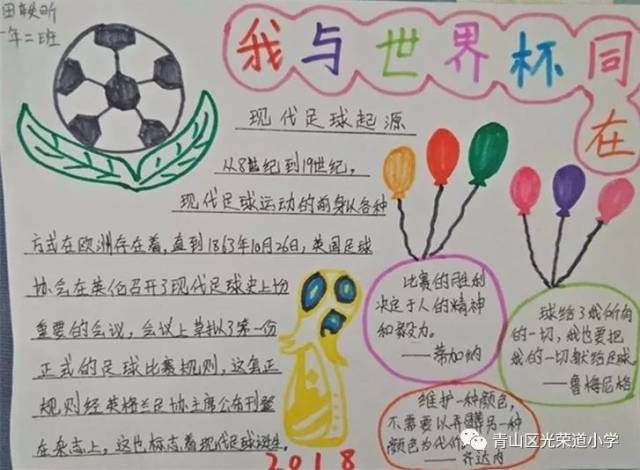 一年二班
我与世界杯同
在
现代足球起源
从8世纪到19世纪，
现代足球运动的前身以各种
方式在欧洲存在着，直到1863年10月26日，英国足球
协会在英伦召开了现代足球史上切
重要的会议，会议上草拟了第一份
正式的足球比赛规则，这套正
规则经英格兰足协主席公布刊登
在杂志上，这也标志着现代足球诞生。
比赛的胜利
决定于人的精神
和毅力。
——蒂加纳
球给了我所有
的一切，我也要把
我的一切献给足球。
——鲁梅尼格
维护一种颜色，
不需要以弄
另一种
颜色为代价
——齐达内
2018
青山区光荣道小学